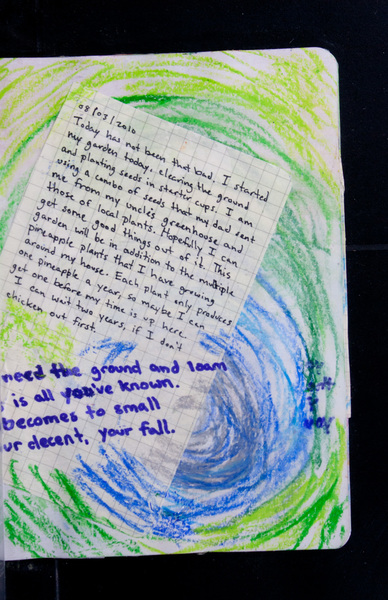 08/03/2010
Today has not been that bad. I started
my garden today, clearing the ground
and planting seeds in starter cups. I am
using a combo of seeds that my dad sent
me from my uncle's greenhouse and
those of local plants. Hopefully I can
get some good things out of it. This
garden will be in addition to the multiple
pineapple plants that I have growing
around my house. Each plant only produces
one pineapple a year, so maybe I can
get one before my time is up here.
I can wait two years, if I don't
chicken out first.
need the ground and loam
is all you've known.
becomes to small
ur decent, your fall.